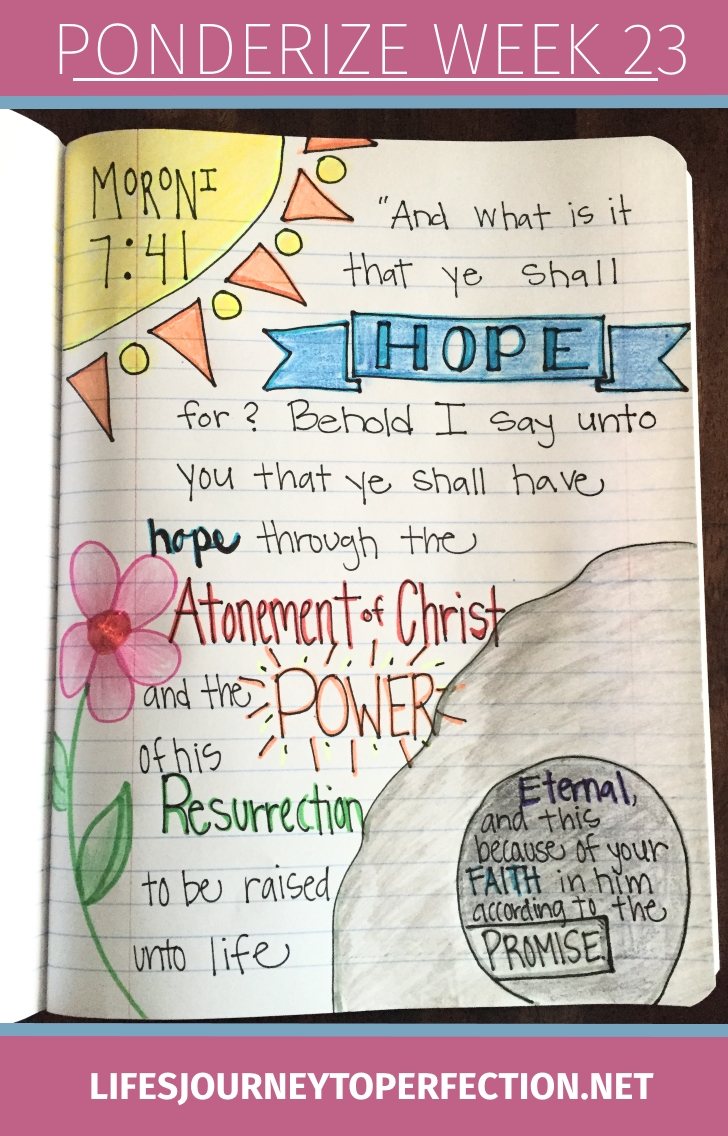 PONDERIZE WEEK 23
MORONI
7:41
"And what is it
that ye shall
HOPE
for? Behold I say unto
you that ye shall have
hope through the
Atonement of Christ
and the POWER
of his
Resurrection
to be raised
unto life
Eternal,
and this
because of your
FAITH in him
according to the
PROMISE.
LIFESJOURNEYTOPERFECTION.NET